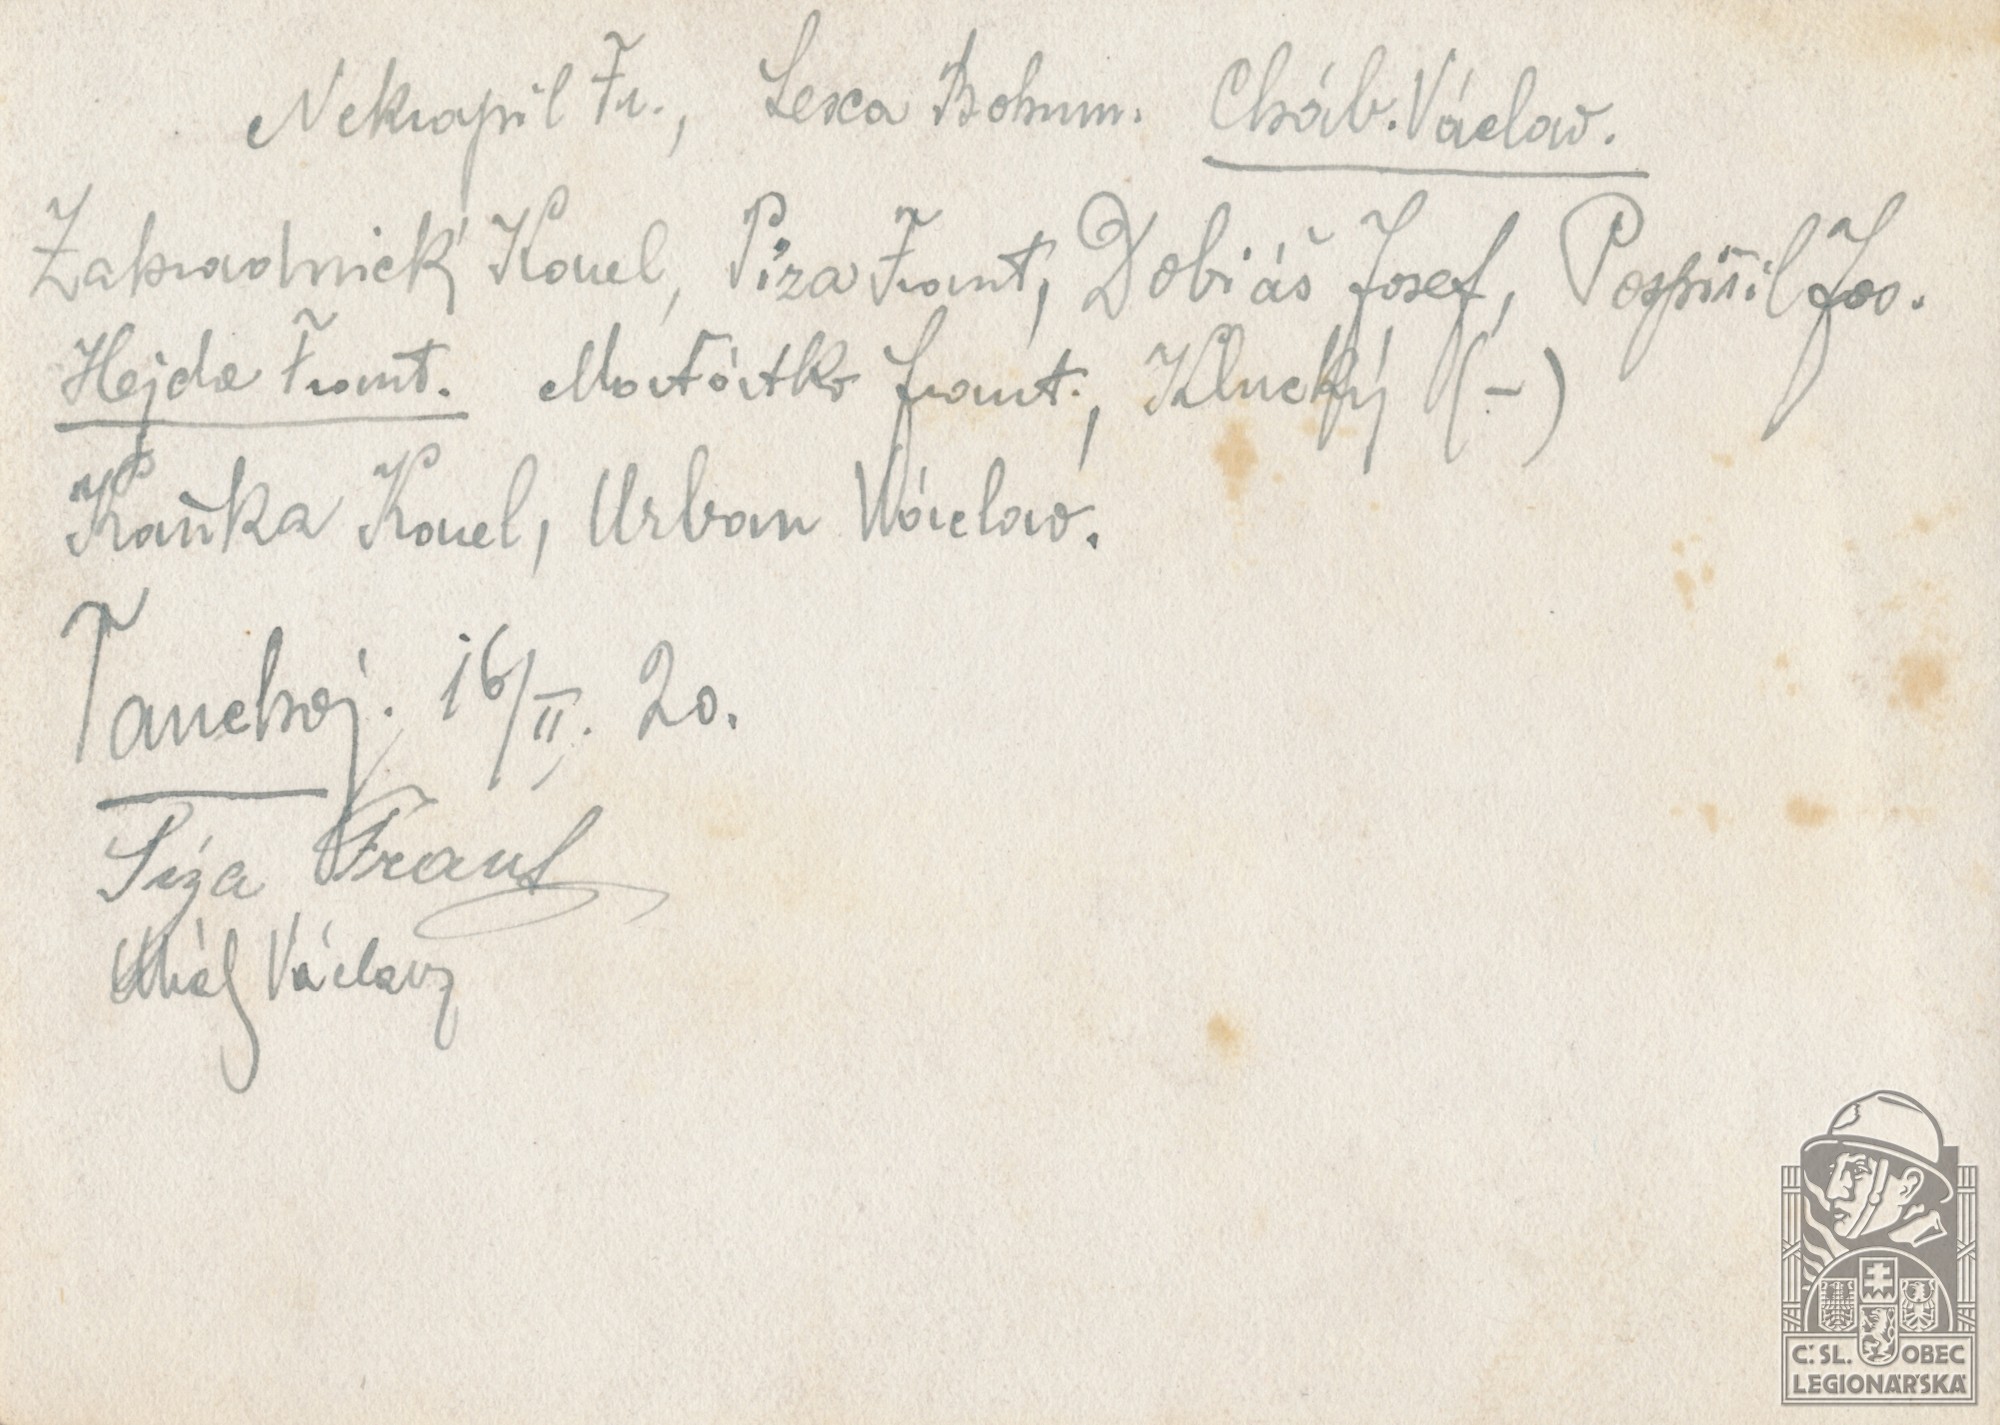 Nekvapil Fr., Lexa Bohum. Cháb. Václav.
Zahradnický Karel, Píza Frant, Dobiáš Josef, Pospíšil Jos.
Hejda Frant. Frant., Klucký (-)
Kaňka Karel, Urban Václav.
Tauchoj. 16/II. 20.
Píza Frant
Václav
Č.SL. OBEC
LEGIONÁŘSKÁ